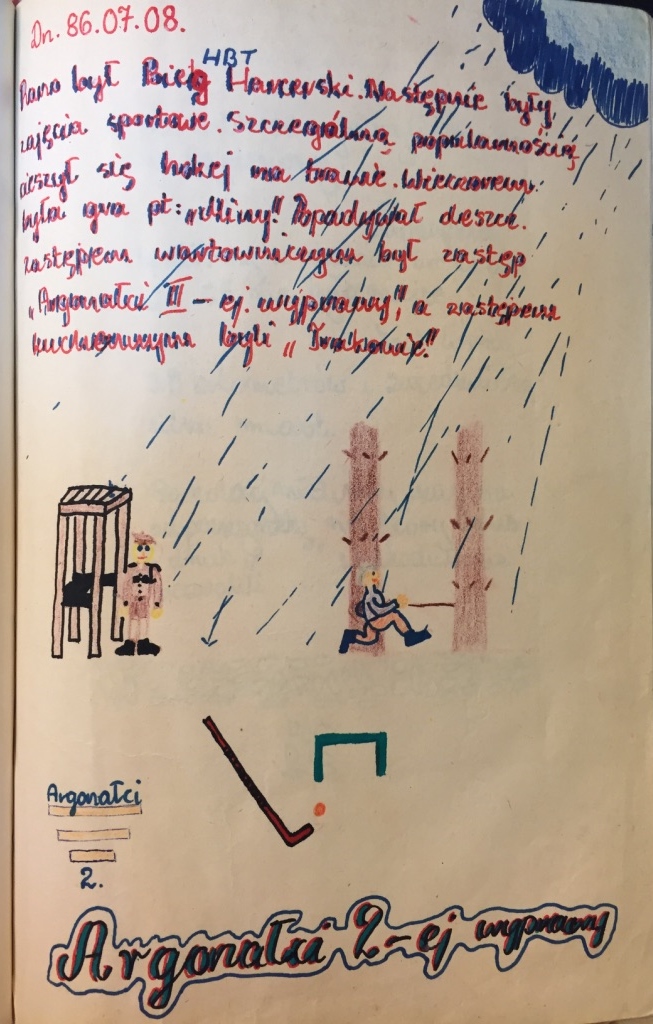 Dn. 86.07.08.
HBT
Rano był Bieg Harcerski. Następnie były
zajęcia sportowe. Szczególną popularnością
cieszył się hokej na trawie. Wieczorem
była gra pt: „Miny". Popadywał deszcz.
zastępem wartowniczym był zastęp
„Argonałci III – ej. wyprawy", a zastępem
kuchennym byli „Trakowie".
Argonałci
2.
Argonałci 2-ej wyprawy